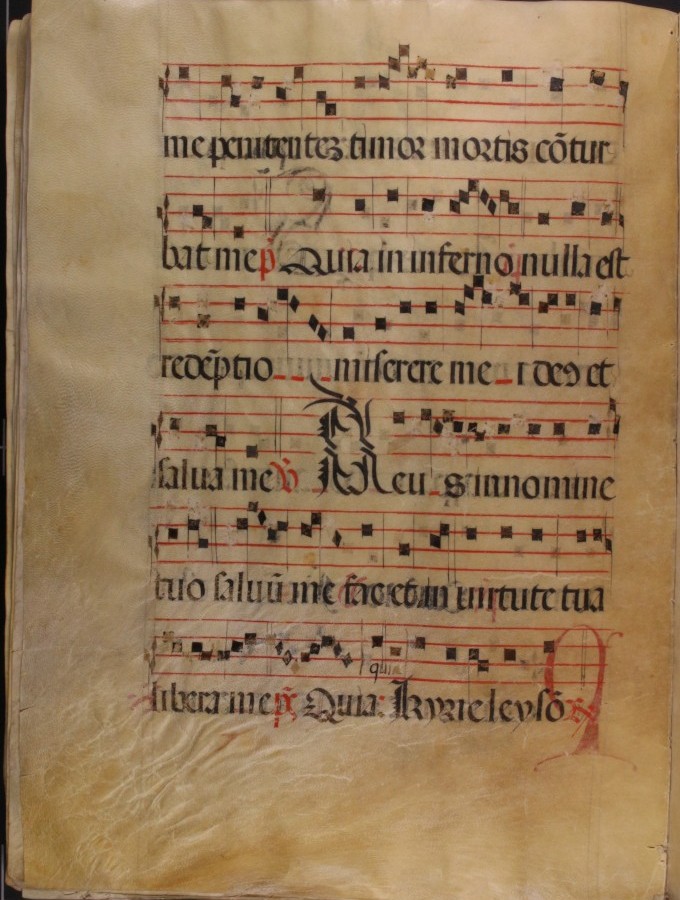 me penitentez timor mortis cõtur
bat me p̃ Quia in inferno nulla est
redẽptio miserere mei deꝰ et
salua me ꝟ Deus in nomine
tuo saluũ me fac et in uirtute tua
qui
libera me p̃ Quia: kyrieleysõ